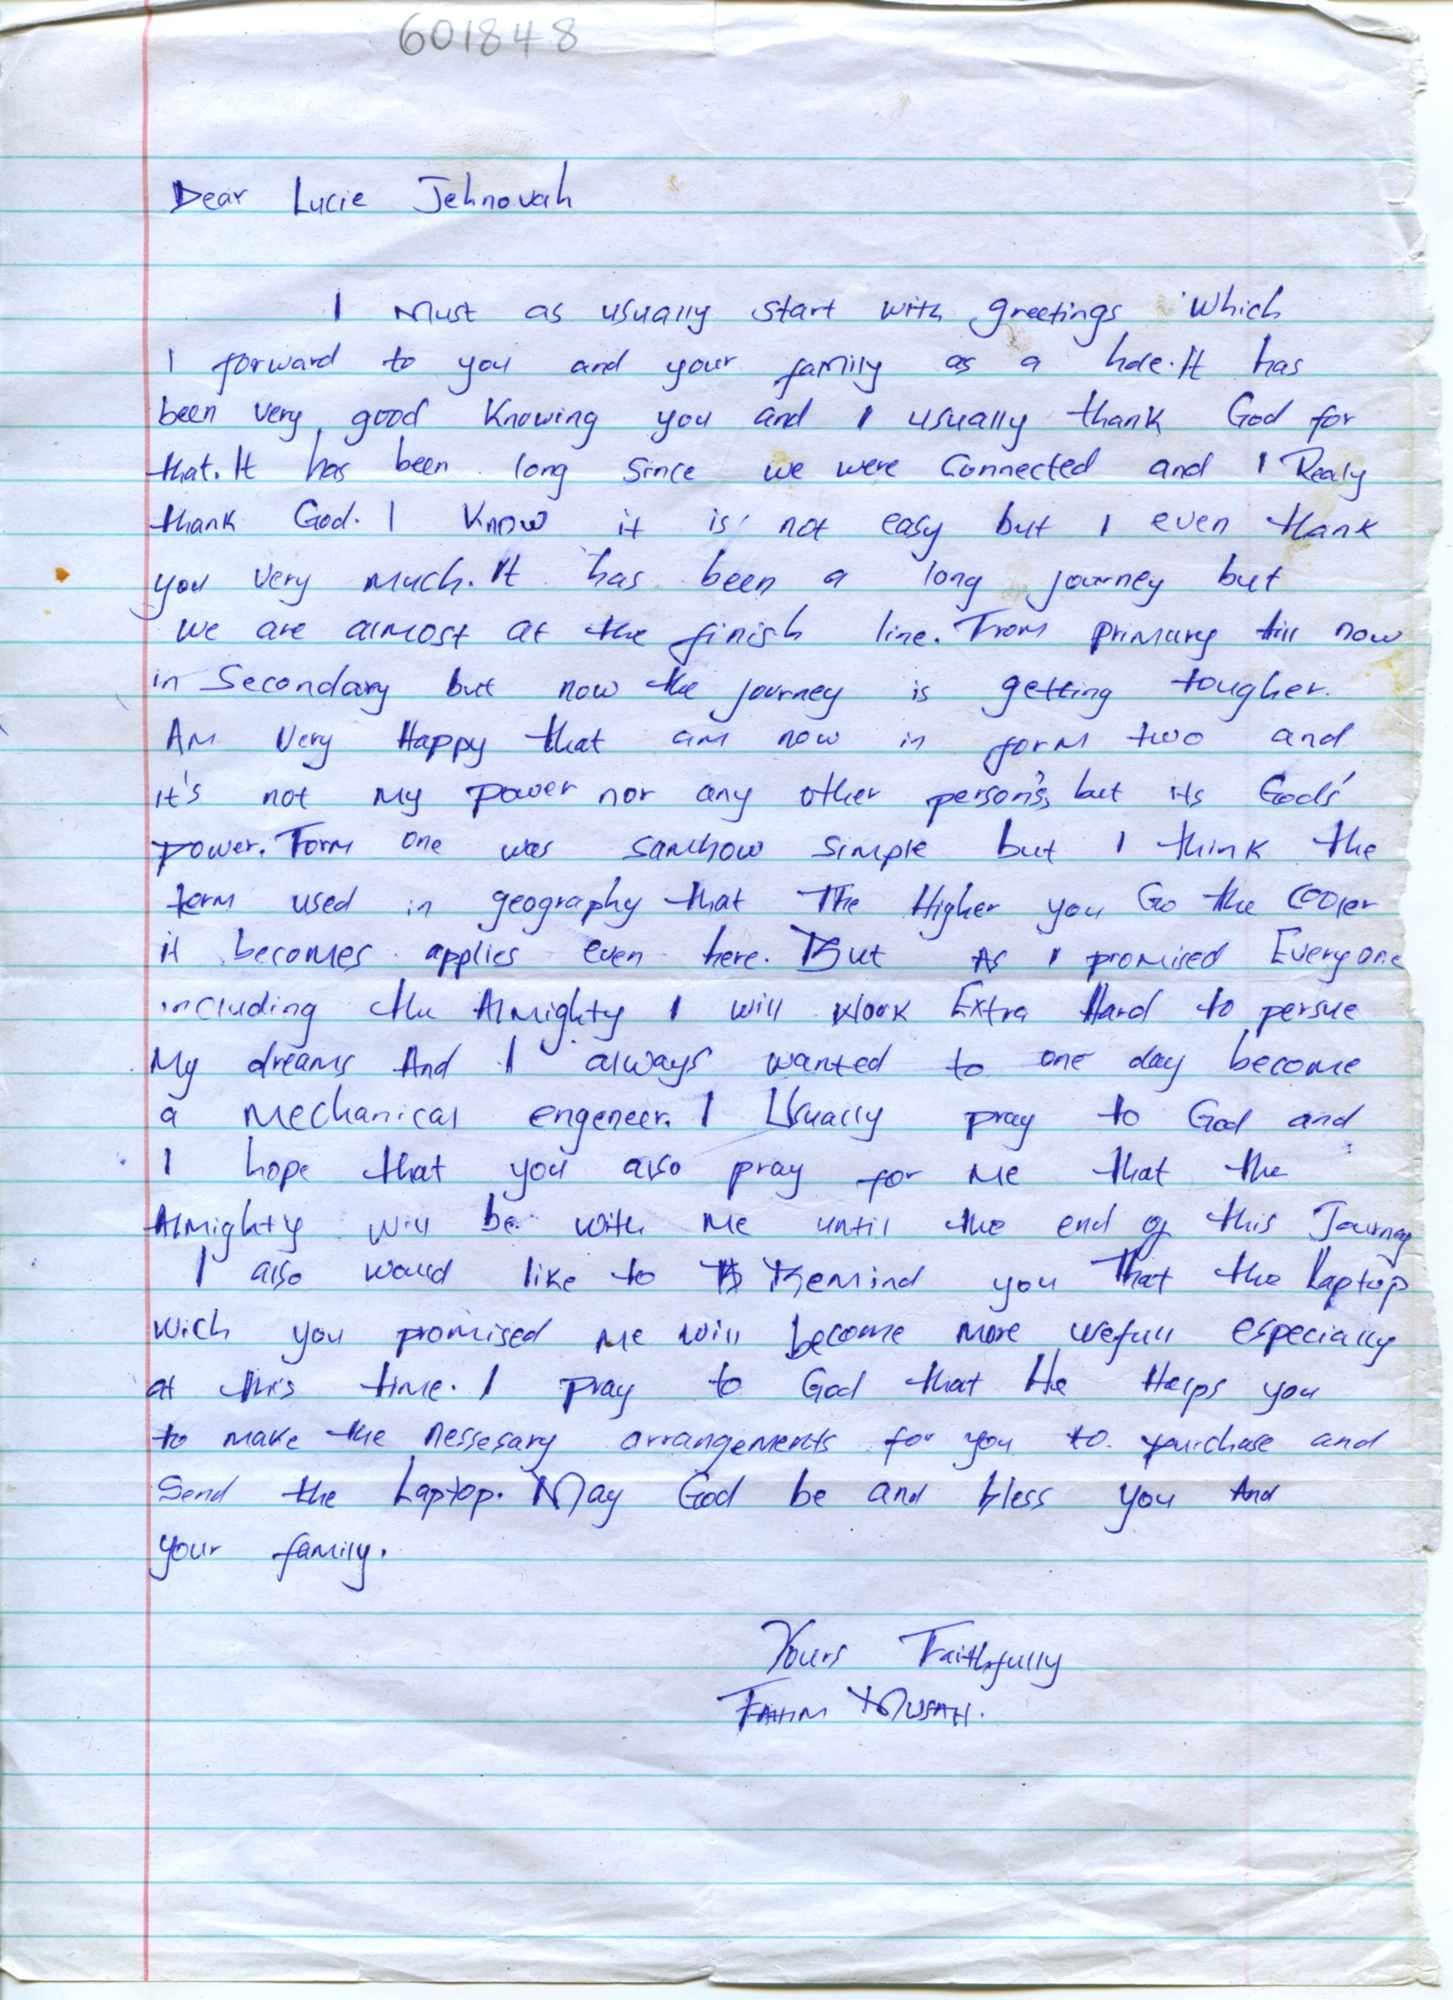 601848
Dear Lucie Jehnovah
I must as usually start with greetings which
I forward to you and your family as a hole. It has
been very good knowing you and I usually thank God for
that. It has been long since we were connected and I Realy
thank God. I know it is not easy but I even thank
you very much. It has been a long journey but
we are almost at the finish line. From primary till now
in Secondary but now the journey is getting tougher.
Am very Happy that am now in form two and
it's not my power nor any other person's, but its Gods'
power. Form one was samhow simple but I think the
term used in geography that The Higher you Go the cooler
it becomes applies even here. But As I promised Everyone
including the Almighty I will Work Extra Hard to persue
My dreams And I always wanted to one day become
a Mechanical engeneer. I Usually pray to God and
I hope that you also pray for me that the
Almighty will be with me until the end of this Journey
I also would like to Remind you That the Laptop
wich you promised me will become more usefull especially
at this time. I pray to God that He Helps you
to make the nessesary arrangements for you to purchase and
Send the Laptop. May God be and bless you And
your family.
Yours Faithfully
FAHIM MUSAH.